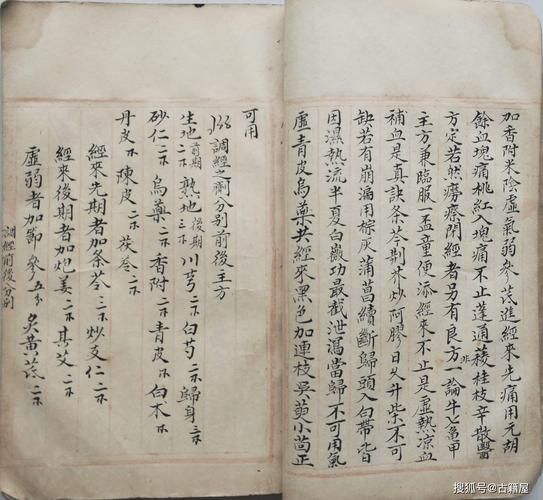 加香附米陰虛氣弱參茋進經來先痛用元胡
餘血塊痛桃紅入塊痛不止蓬通菱桂枝辛散醫非
方定若然癆瘵閉經者另有良方一論牛七龜甲
主方兼臨服一盃童便添經來不止是虛熱涼血
補血是真訣条芩荆芥炒阿膠日久升柴不可
缺若有崩漏用棕灰蒲菖續斷歸頭入白帶皆
因濕熱流半夏白薇功最截泄瀉當歸不可用氣
虛青皮烏藥共經來黑色加連枝吳萸小茴正
可用
調經之剤分别前後主方
生地前期二 熟地後期三 川芎二 白芍二 歸身三
砂仁二 烏藥二 香附二 青皮 白木二
丹皮 陳皮二 茯苓二
經來先期者加条芩三 炒支仁二
經來後期者加炮姜二 其艾二
虛弱者加節參五分 炙黄茋二
調經前後分别
搜狐号@古籍屋